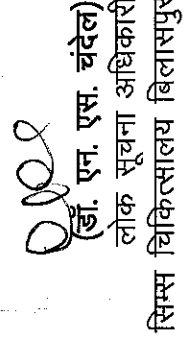 (डॉ. एन. एस. चंदेल)
लोक सूचना अधिकारी
सिम्स चिकित्सालय बिलासपुर